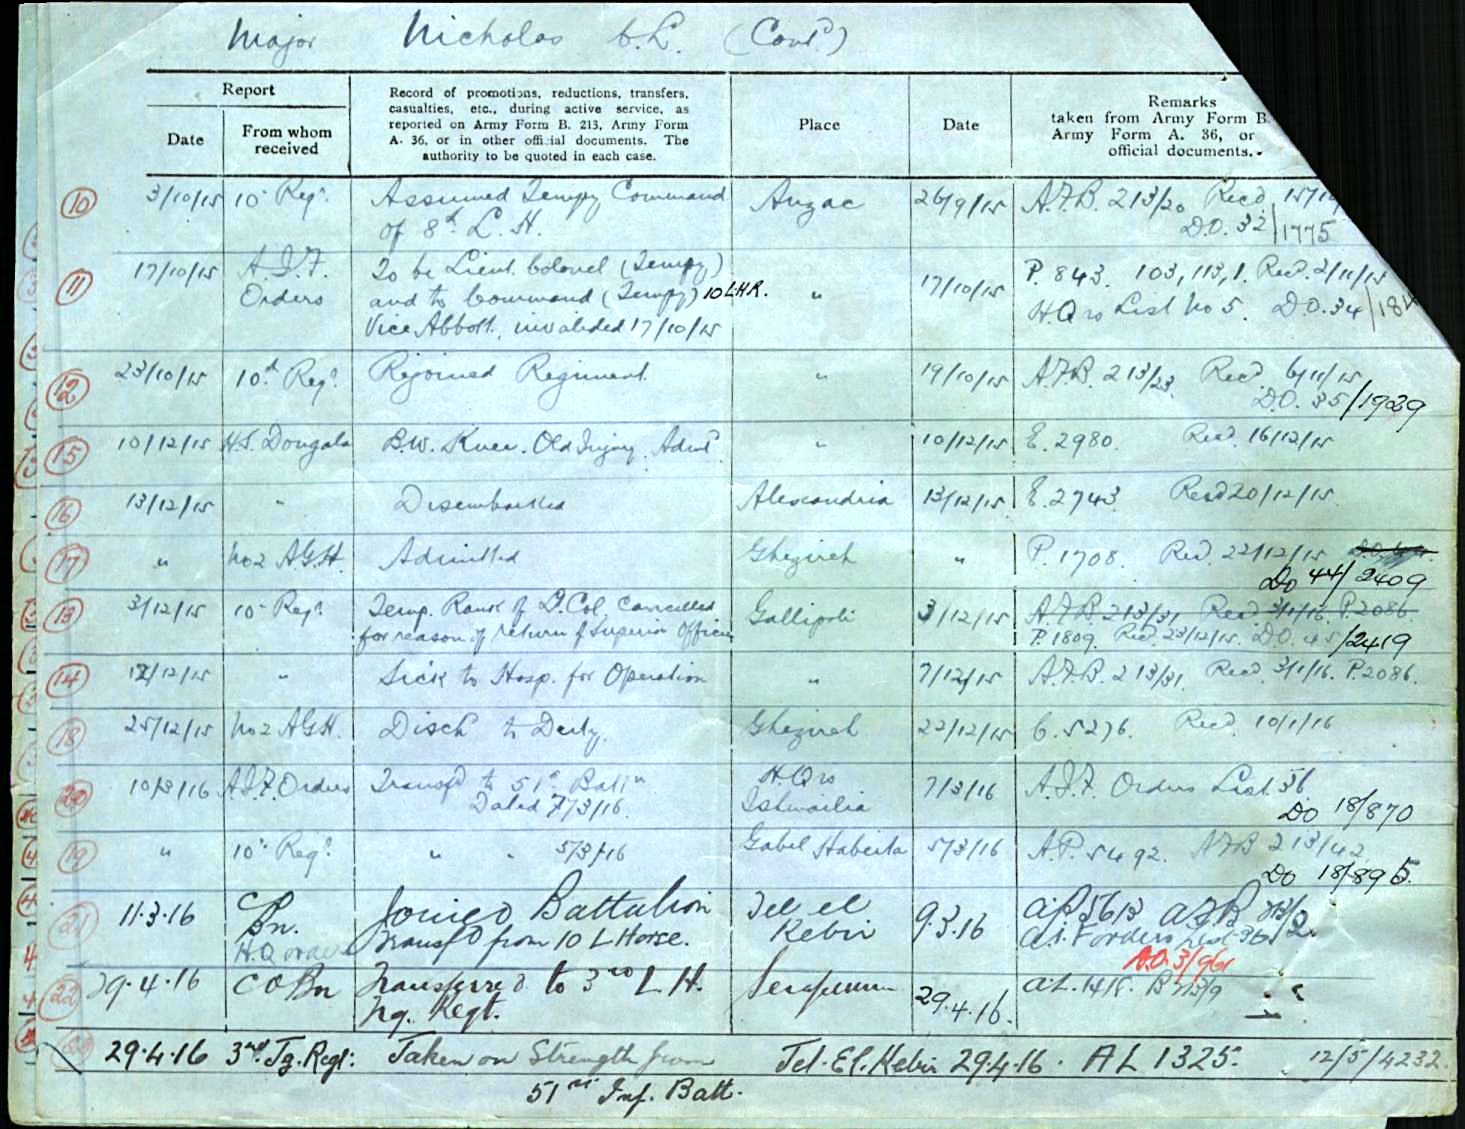 Major Nicholas C.L. (Cont'd)
Report
Date
From whom
received
Record of promotions, reductions, transfers,
casualties, etc., during active service, as
reported on Army Form B. 213, Army Form
A. 36, or in other official documents. The
authority to be quoted in each case.
Place
Date
Remarks
taken from Army Form B.
Army Form A. 36, or
official documents.
10 3/10/15 10th Regt. Assumed Tempy Command Anzac 26/9/15 A.F.B. 213/20 Recd. 15/10
of 8th L. H. D.O. 32/1775
11 17/10/15 A.I.F. To be Lieut. Colonel (Tempy) " 17/10/15 P. 843. 103, 113, 1. Recd. 2/11/15
Orders and to Command (Tempy) 10 LHR. H.Qrs List No 5. D.O. 34/184
Vice Abbott, invalided 17/10/15
12 23/10/15 10th Regt. Rejoined Regiment " 19/10/15 A.F.B. 213/23. Recd. 6/11/15
D.O. 35/1929
15 10/12/15 H.S. Dongola B.W. Knee. Old Injury Admd " 10/12/15 E. 2980. Recd. 16/12/15
16 13/12/15 " Disembarked Alexandria 13/12/15 E. 2743 Recd 20/12/15
17 " No 2 AGH. Admitted Ghezireh " P. 1708. Recd. 22/12/15
Do 44/2409
13 3/12/15 10th Regt. Temp. Rank of Lt. Col. cancelled Gallipoli 3/12/15 A.F.B. 213/31 Recd. 3/1/16. P. 2086
for reason of return of Superior Officer P. 1809. Recd. 23/12/15. D.O. 45/2419
14 12/12/15 " Sick to Hosp. for Operation " 7/12/15 A.F.B. 213/31. Recd. 3/1/16. P. 2086.
18 25/12/15 No 2 AGH. Disch to Duty. Ghezireh 22/12/15 C. 5276. Recd. 10/1/16
20 10/3/16 A.I.F. Orders Transfd to 51st Battn H.Qrs 7/3/16 A.I.F. Orders List 36
Dated 7/3/16. Ishmailia Do 18/870
19 " 10th Regt. " " 5/3/16 Gabel Habeita 5/3/16 A.P. 5492. AFB 213/42
Do 18/895.
21 11.3.16 C Bn. Joined Battalion Tel el 9.3.16 A.P. 5613 AFB 213/2.
H.Q orders Transfd from 10 L Horse. Kebir A.I.F orders List 36
D.O. 3/961
22 29.4.16 C O Bn Transferred to 3rd L H. Serapeum 29.4.16. A.L. 1418. B 213/9
Trg. Regt.
29.4.16 3rd Tg. Regt: Taken on Strength from Tel. El. Kebir 29.4.16. A L 1325. 12/5/4232.
51st Inf. Batt.